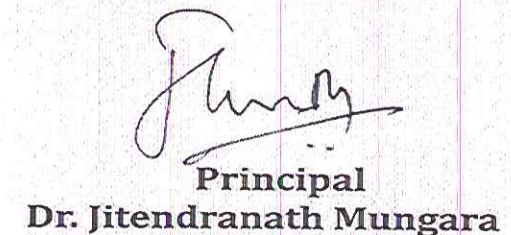 Principal
Dr. Jitendranath Mungara